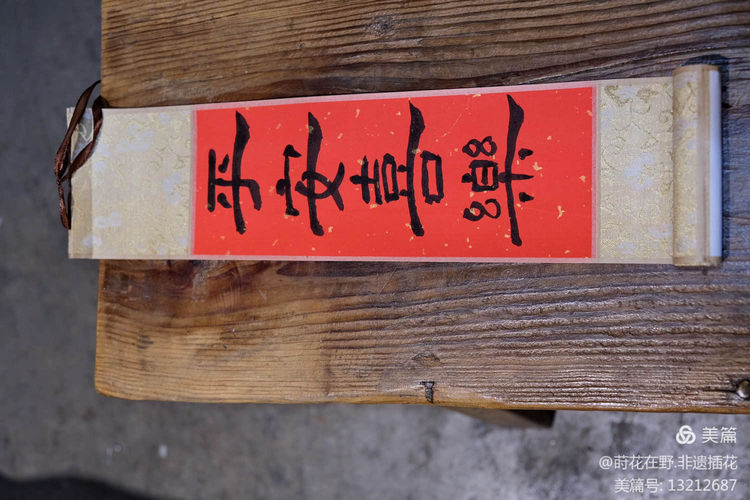 平安喜樂
美篇
@莳花在野.非遗插花
美篇号: 13212687